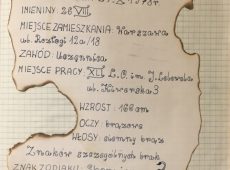 X 1978r
IMIENINY: 26 VIII
MIEJSCE ZAMIESZKANIA: Warszawa
ul. Rozłogi 12a/18
ZAWÓD: Uczennica
MIEJSCE PRACY: XLI L.O. im J. Lelewela
ul. Kiwerska 3
WZROST: 166cm
OCZY: brązowe
WŁOSY: ciemny brąz
Znaków szczególnych brak
ZNAK ZODIAKU: